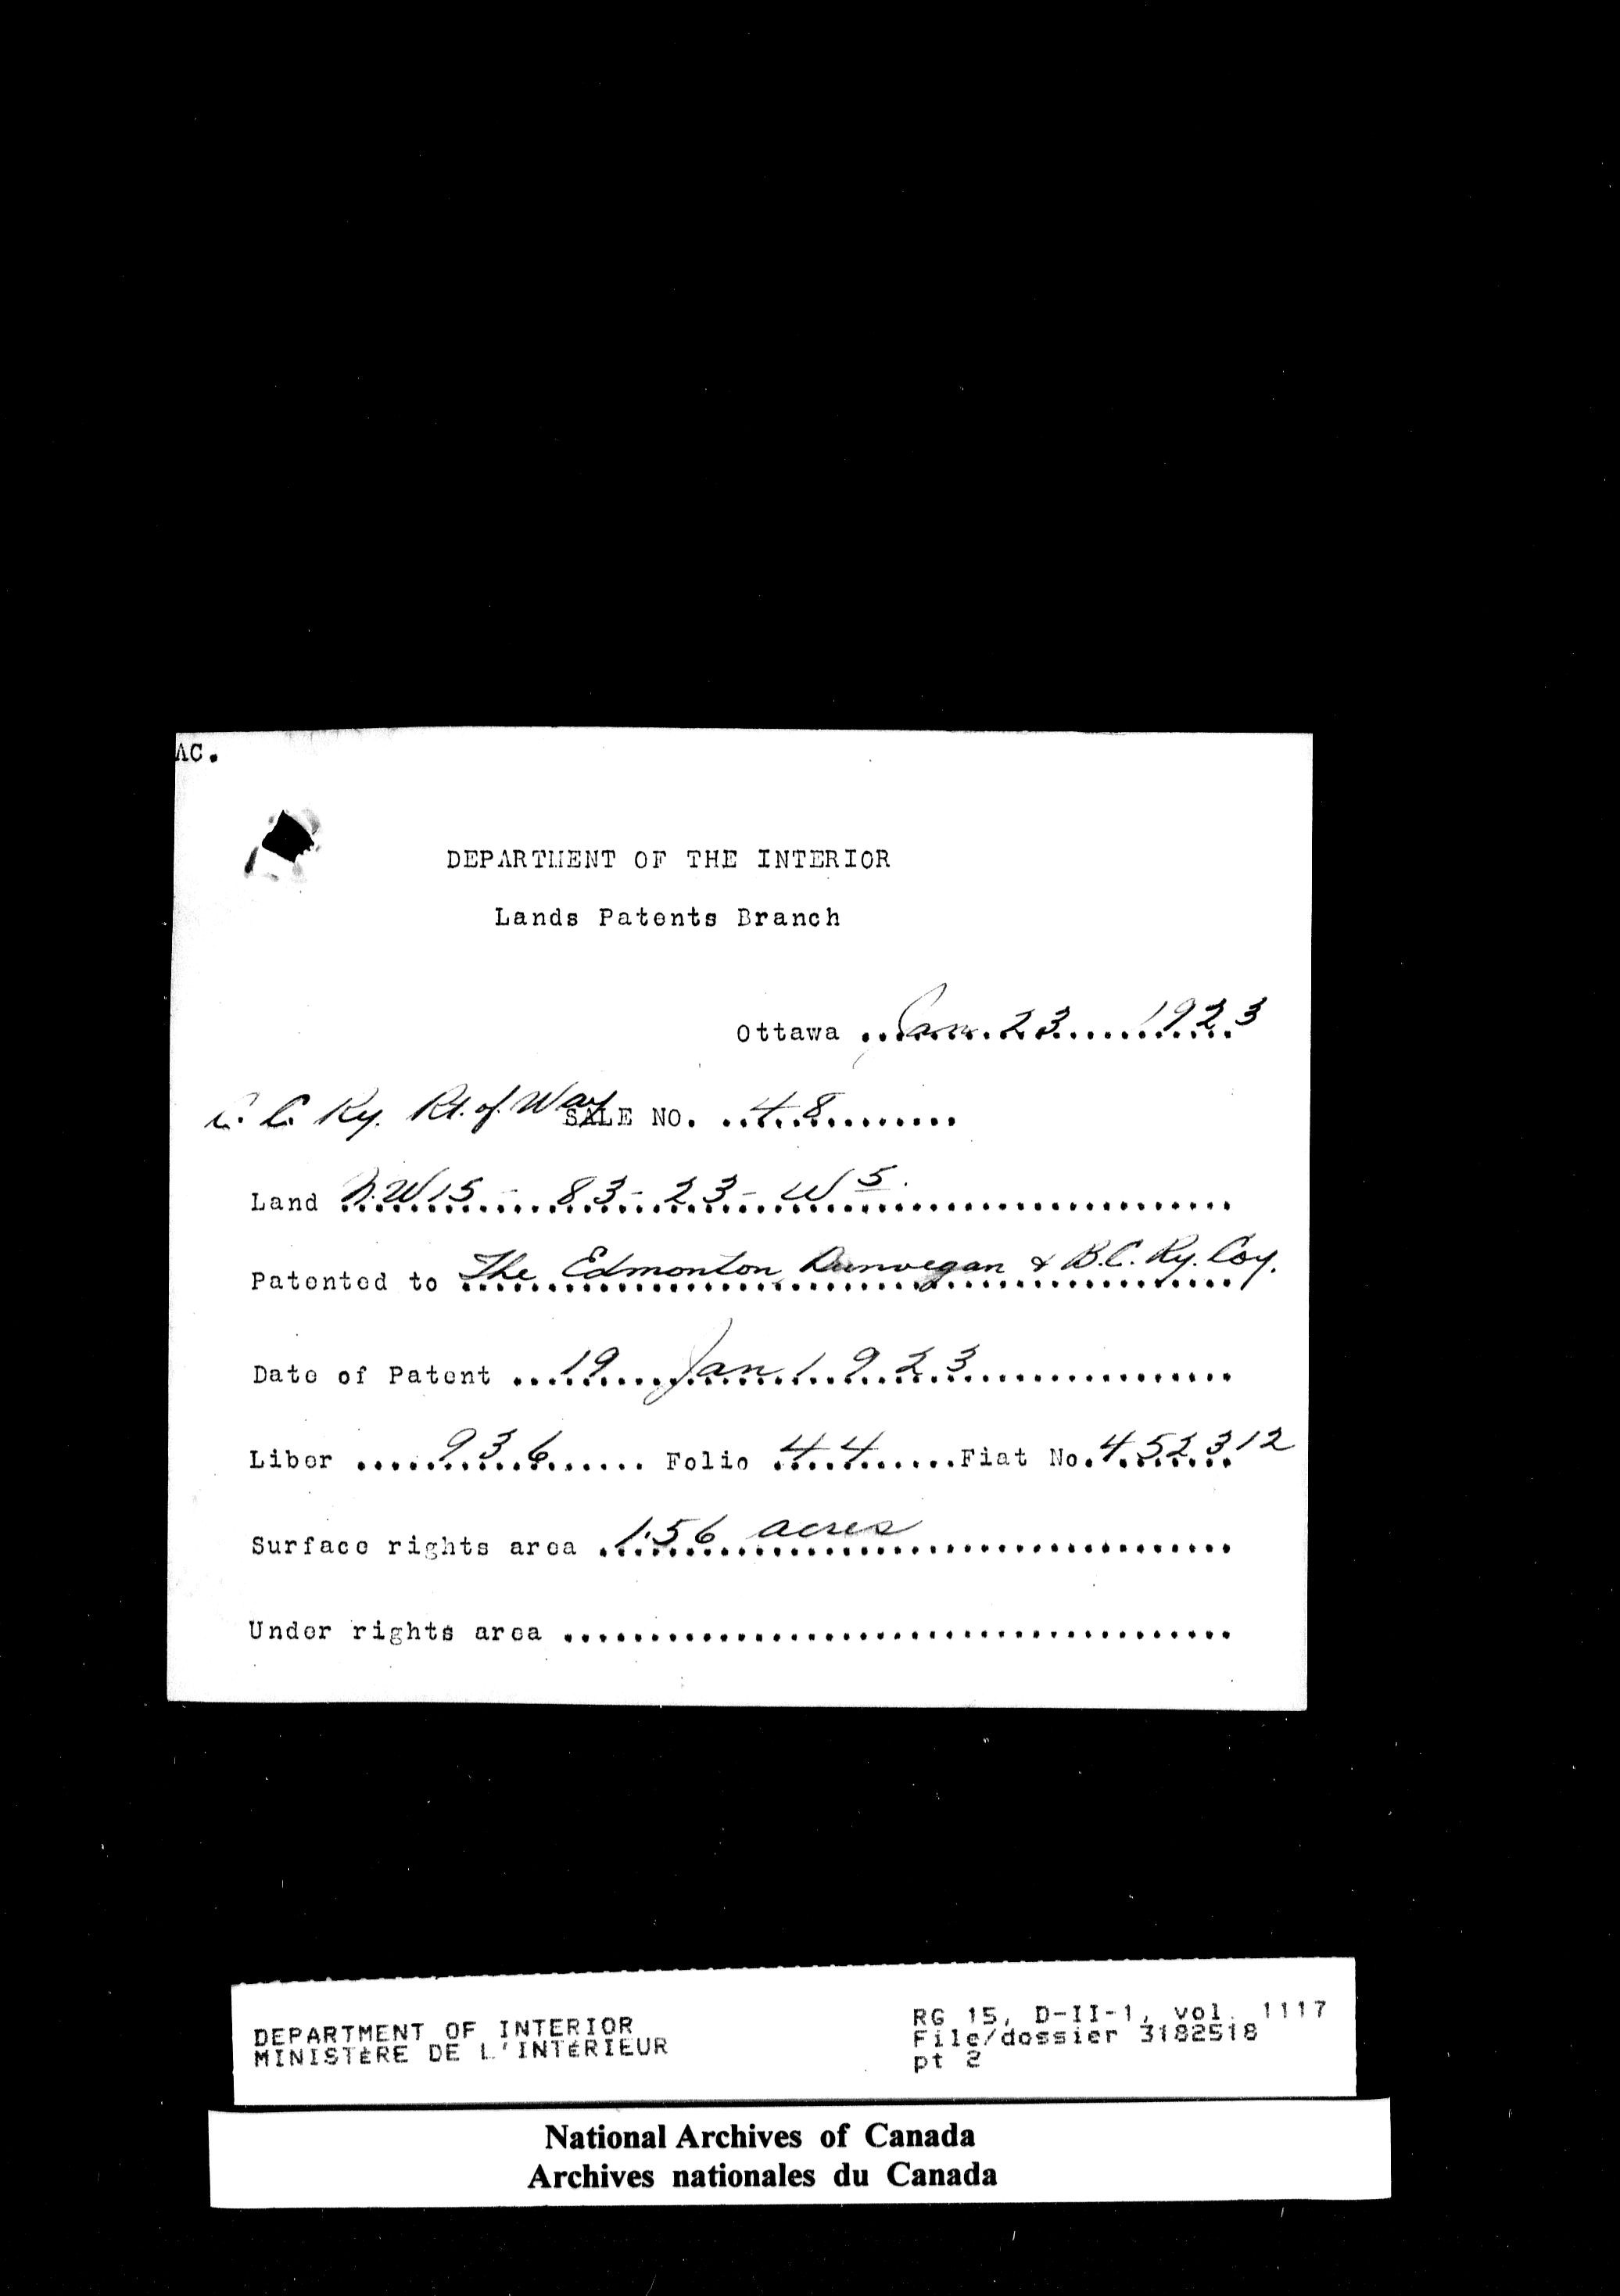 AC.
DEPARTMENT OF THE INTERIOR
Lands Patents Branch
Ottawa ..Jan. 23.....1923
C. C. Ry. Rt. of Way SALE NO. ..48............
Land N.W 15 - 83 - 23 - W 5.
Patented to The Edmonton Dunvegan & B.C. Ry. Coy.
Date of Patent ...19...Jan 1923...............
Liber .....936...... Folio 44......Fiat No.452312
Surface rights area 1.56 acres..................
Under rights area ......................................
DEPARTMENT OF INTERIOR
MINISTÈRE DE L'INTÉRIEUR
RG 15, D-II-1, vol. 1117
File/dossier 3182518
pt 2
National Archives of Canada
Archives nationales du Canada